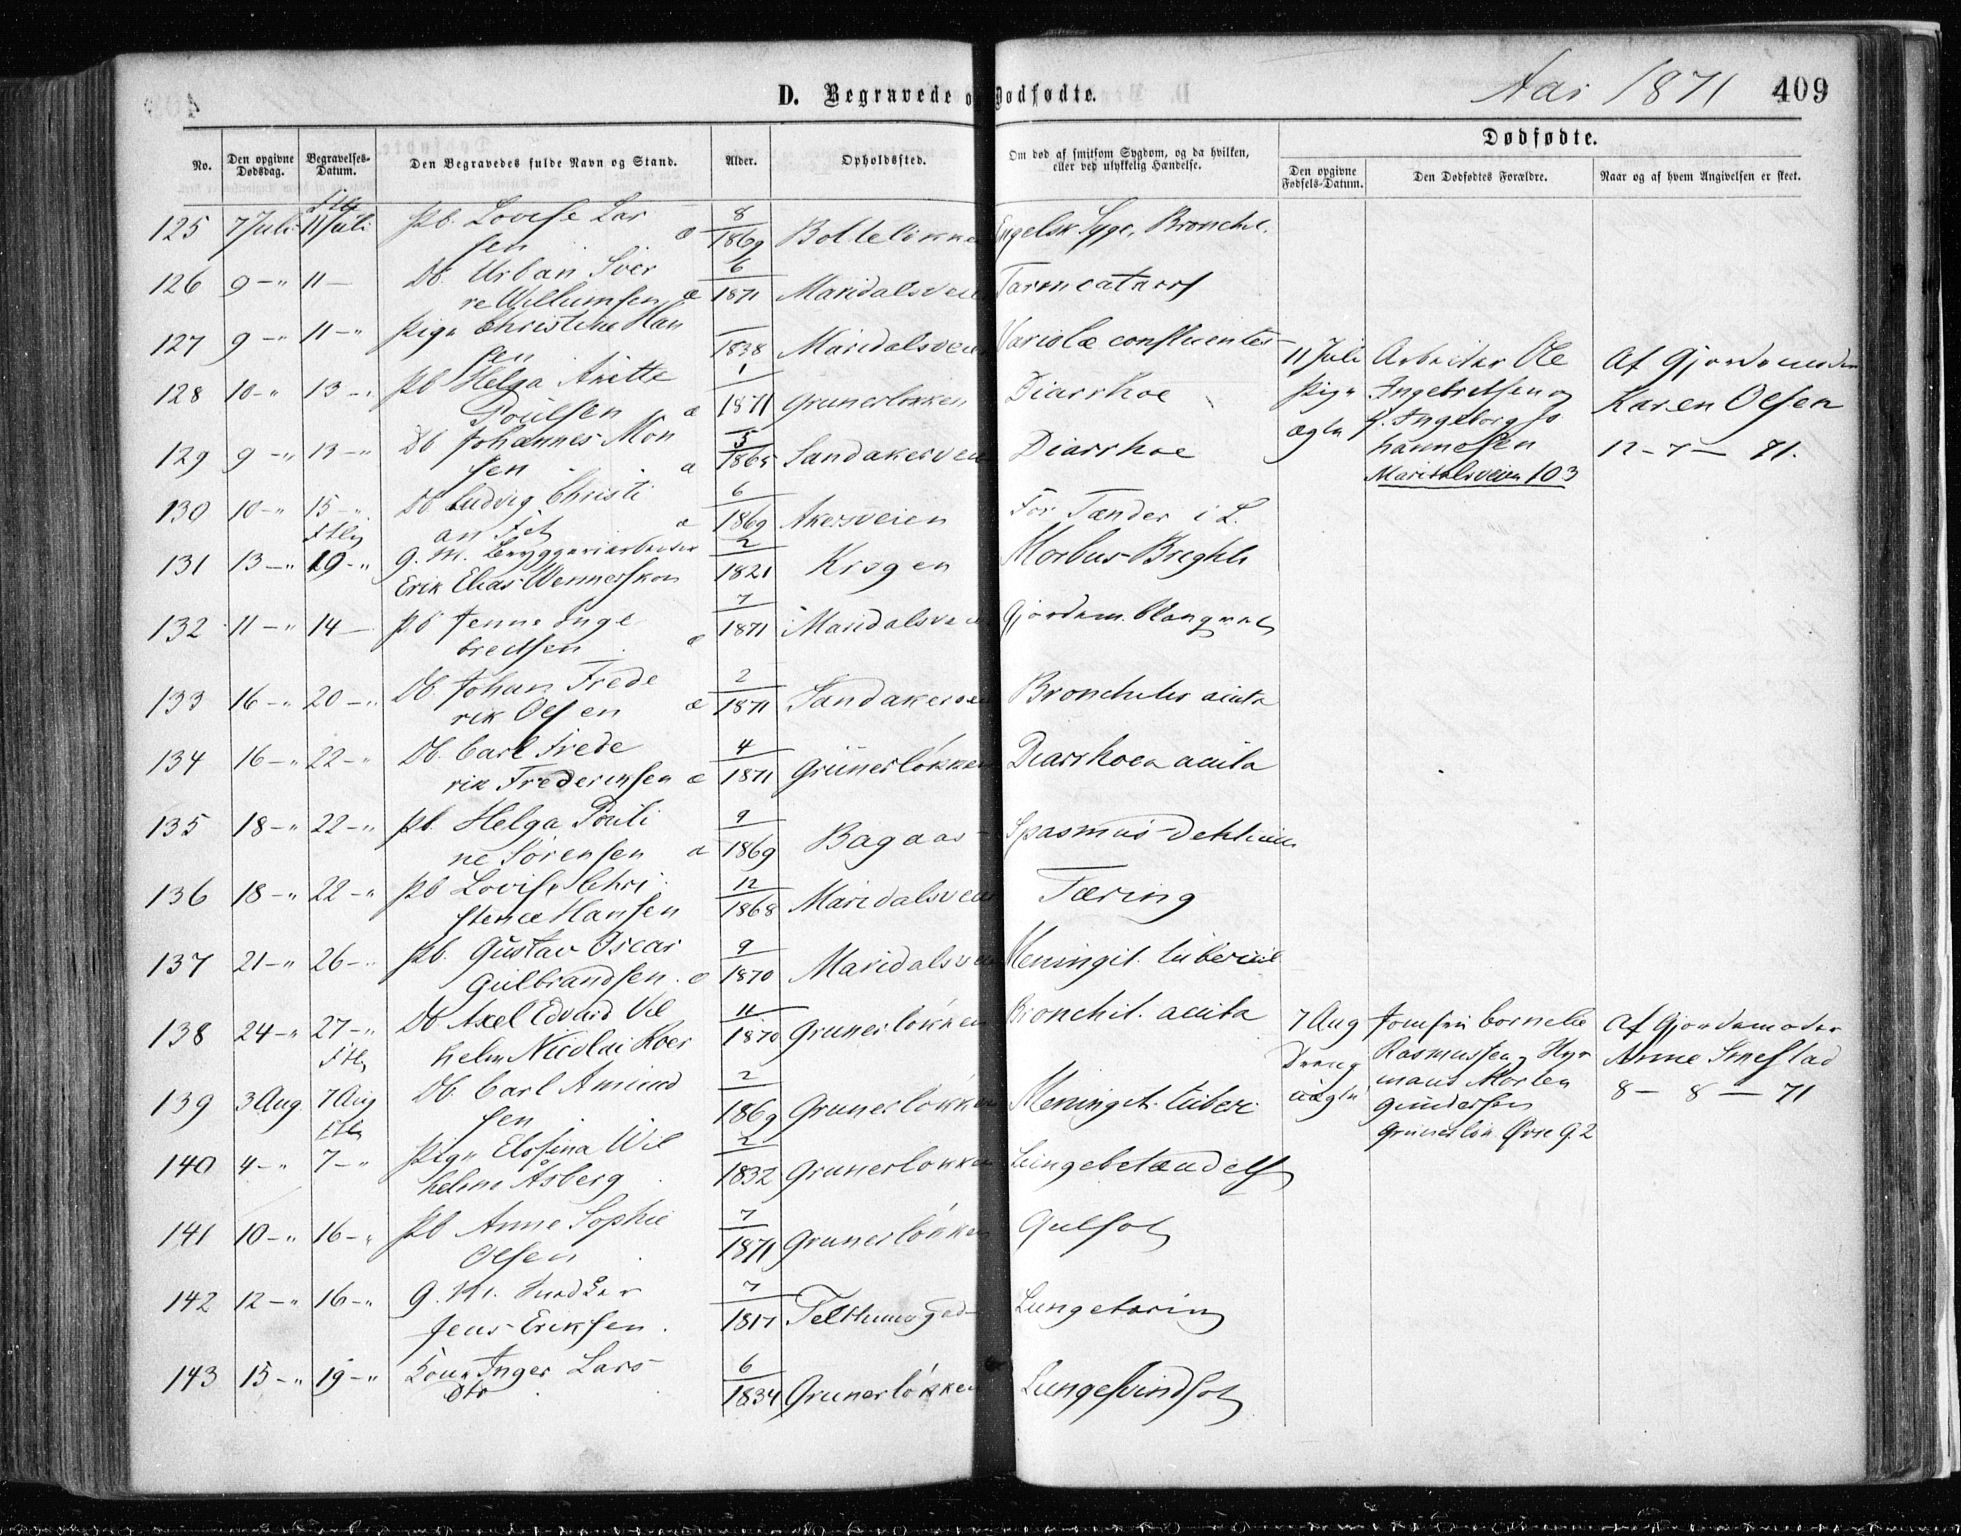 D. Begravede o
Dodfødte.
Aar 1871
409
No.
Den opgivne Dødsdag.
Begravelses-Datum.
Den Begravedes fulde Navn og Stand.
Alder.
Opholdssted.
Om død af smitsom Sygdom, og da hvilken, eller ved ulykkelig Hændelse.
Dødfødte.
Den opgivne Fødsels-Datum.
Den Dødfødtes Forældre.
Naar og af hvem Angivelsen er skeet.
125 7 Juli 11 Juli Pb. Lovise Lar
sen æ 8/1869 Bolteløkken Engelsk Syge, Bronchit.
126 9 –" 11 – Db. Urban Sver
re Willumsen æ 6/1871 Maridalsveien Tarmcatarrh
127 9 –" 11 –" Pign Christine Han
sen 1838 Maridalsveien Variolæ confluentes
128 10 –" 13 –" Pb Helga Anette
Poulsen æ 1/1871 Grunerløkken Diarrhoe
129 9 –" 13 –" Db Johannes Mon
sen æ 5/1865 Sandakerveien Diarrhoe
11 Juli
Pign
ægte
Arbeider Ole
Ingebretsen og
H. Ingeborg Jo
hannesen
Maridalsveien 103
Af Gjordemoder
Karen Olsen
12 – 7 – 71.
130 10 –" 15 –" Db Ludvig Christi
an æ 6/1869 Akersveien For Tænder i L.
131 13 –" 19 –" G. M. Bryggeriarbeider
Erik Elias Wennerskon 2/1821 Krogen Morbus Brightii
132 11 –" 14 – Pb Jenne Inge
bretsen æ 7/1871 Maridalsveien Gjordem.
133 16 –" 20 –" Db Johan Frede
rik Olsen æ 2/1871 Sandakerveien Bronchitis acuta
134 16 –" 22 –" Db. Carl Frede
rik Frederiksen æ 4/1871 Grünerløkken Diarrhoea acuta
135 18 –" 22 –" Pb. Helga Pauli
ne Sørensen æ 9/1869 Bagaas Spasmus
136 18 –" 22 –" Pb Lovise Chri
stence Hansen 12/1868 Maridalsveien Tæring
137 21 –" 26 –" Pb. Gustav Oscar
Gulbrandsen. æ 9/1870 Maridalsveien Meningit. tubercul
138 24 –" 27 –" Db Axel Edvard Vil
helm Nicolai Koer 11/1870 Grunerløkken Bronchit. acuta
139 3 Aug 7 Aug Db. Carl Amund
sen 2/1869 Grunerløkken Meningit. tuber.
7 Aug
Dreng
uægte
Jomfru Cornelie
Rasmussen og Hyr
mand Morten
Gundersen
Grunerløk. Øvre G. 2
Af Gjordemoder
Anne Smestad
8 – 8 – 71
140 4 –" 7 –" Pign Elofina Wil
helmine Åsberg 2/1832 Grunerløkken Lungebetændelse
141 10 –" 16 –" Pb Anne Sophie
Olsen 7/1871 Grunerløkken Gulsot
142 12 –" 16 –" G. M.
Jens Eriksen. 7/1817 Telthusgad Lungetæring
143 15 –" 19 –" Kone Inger Lars
dtr 6/1834 Grunerløkken Lungesvindsot